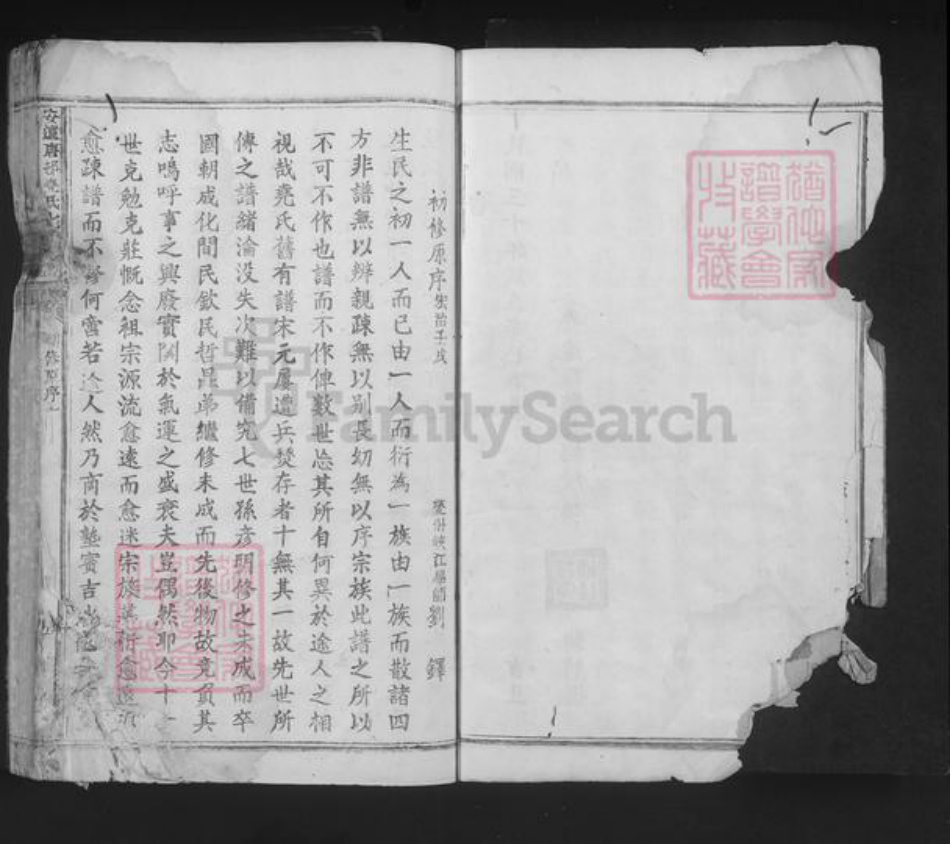 初修原序
劉鐸
生民之初一人而已由一人而衍為一族由一族而散諸四
方非譜無以辨親疎無以別長幼無以序宗族此譜之所以
不可不作也譜而不作俾數世忘其所自何異於途人之相
視哉堯氏舊有譜宋元屢遭兵焚存者十無其一故先世所
傳之譜緒淪没失次難以備究七世孫彦明修之未成而卒
國朝成化間民欽民哲昆弟繼修未成而先後物故竟負其
志嗚呼事之興廢實関於氣運之盛衰夫豈偶然耶今十
世克勉克莊慨念祖宗源流愈遠而愈迷宗族
愈疎譜而不修何啻若途人然乃商於塾賓吉
初修原序
猶他家譜學會收藏
FamilySearch